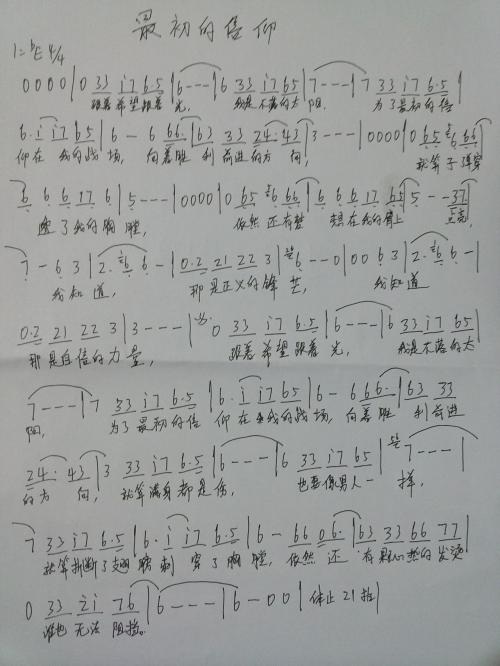 最初的信仰
1=bE 4/4
0 0 0 0 | 0 33 i7 6·5 | 6 - - - | 6 33 i7 65 | 7 - - - | 7 33 i7 6·5 |
跟着希望跟着光, 我是不落的太阳, 为了最初的信
6·i i7 65 | 6 - 6 66· | 63 33 24· 43 | 3 - - - | 0000 | 0 65 66 |
仰在 我的战场, 向着胜利前进的方向, 就算子弹穿
6 6 6 17 6 | 5 - - - | 0000 | 0 65 66 | 6 6 6 17 65 | 5 - - 37 |
透了我的胸膛, 依然还有梦想在我的肩上 点亮,
7 - 6 3 | 2· 6 6 - | 0·2 21 22 3 | 6 - - 0 | 0 0 6 3 | 2· 6 6 - |
我知道, 那是正义的锋芒, 我知道
0·2 21 22 3 | 3 - - - | 0 33 i7 6·5 | 6 - - - | 6 33 i7 65 |
那是自信的力量, 跟着希望跟着光, 我是不落的太
7 - - - | 7 33 i7 6·5 | 6·i i7 65 | 6 - 6 66· | 63 33
阳, 为了最初的信仰在我的战场, 向着胜利前进
24· 43 | 3 33 i7 6·5 | 6 - - - | 6 33 i7 65 | 7 - - - |
的方向, 就算满身都是伤, 也要像男人一样,
7 33 i7 6·5 | 6·i i7 6·5 | 6 - 66 06· | 63 33 66 77 |
就算折断了翅膀刺穿了胸膛, 依然还有颗心热的发烫
0 33 2i 76 | 6 - - - | 6 - 0 0 | 休止21拍 |
谁也无法阻挡。